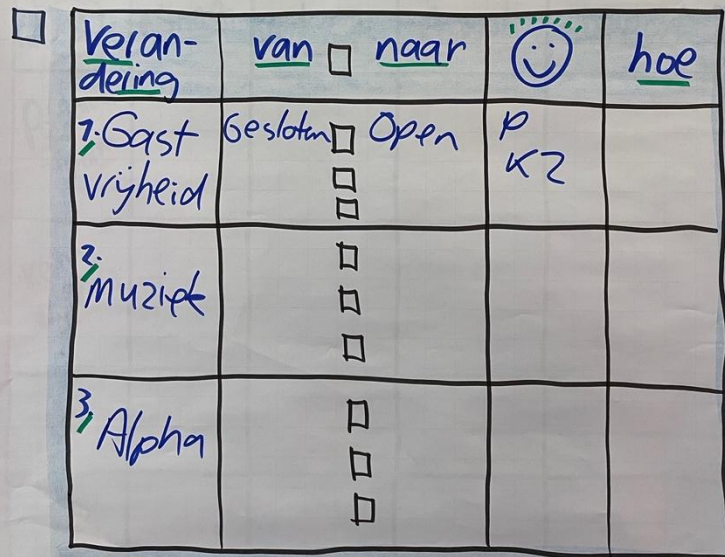 Veran-
dering
van naar
hoe
1. Gast
vrijheid
Gesloten Open
P
KZ
2.
muziek
3, Alpha